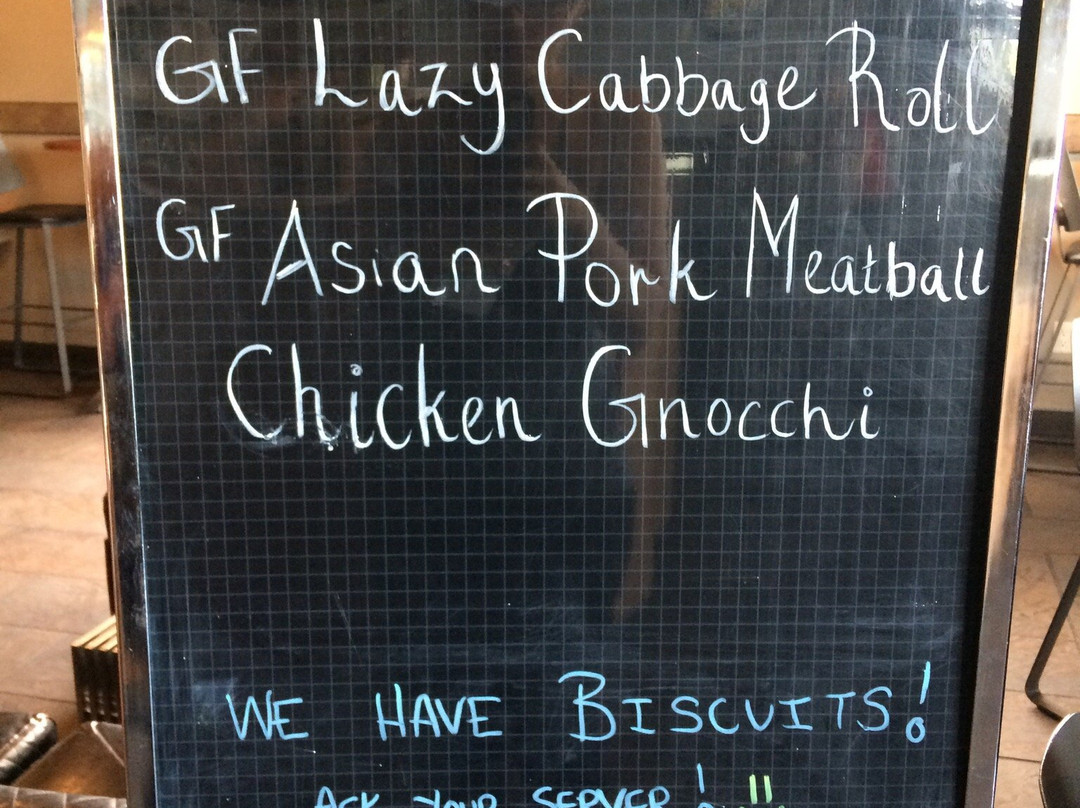 GF Lazy Cabbage Roll
GF Asian Pork Meatball
Chicken Gnocchi
WE HAVE BISCUITS!
ASK YOUR SERVER! !!